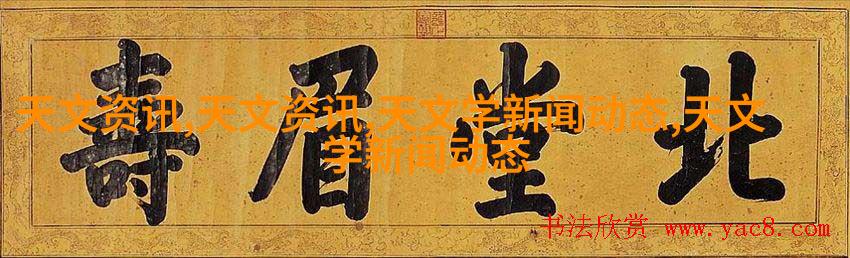 北堂眉壽
天文资讯,天文资讯,天文学新闻动态,天文
学新闻动态
书法欣赏 www.yac8.com